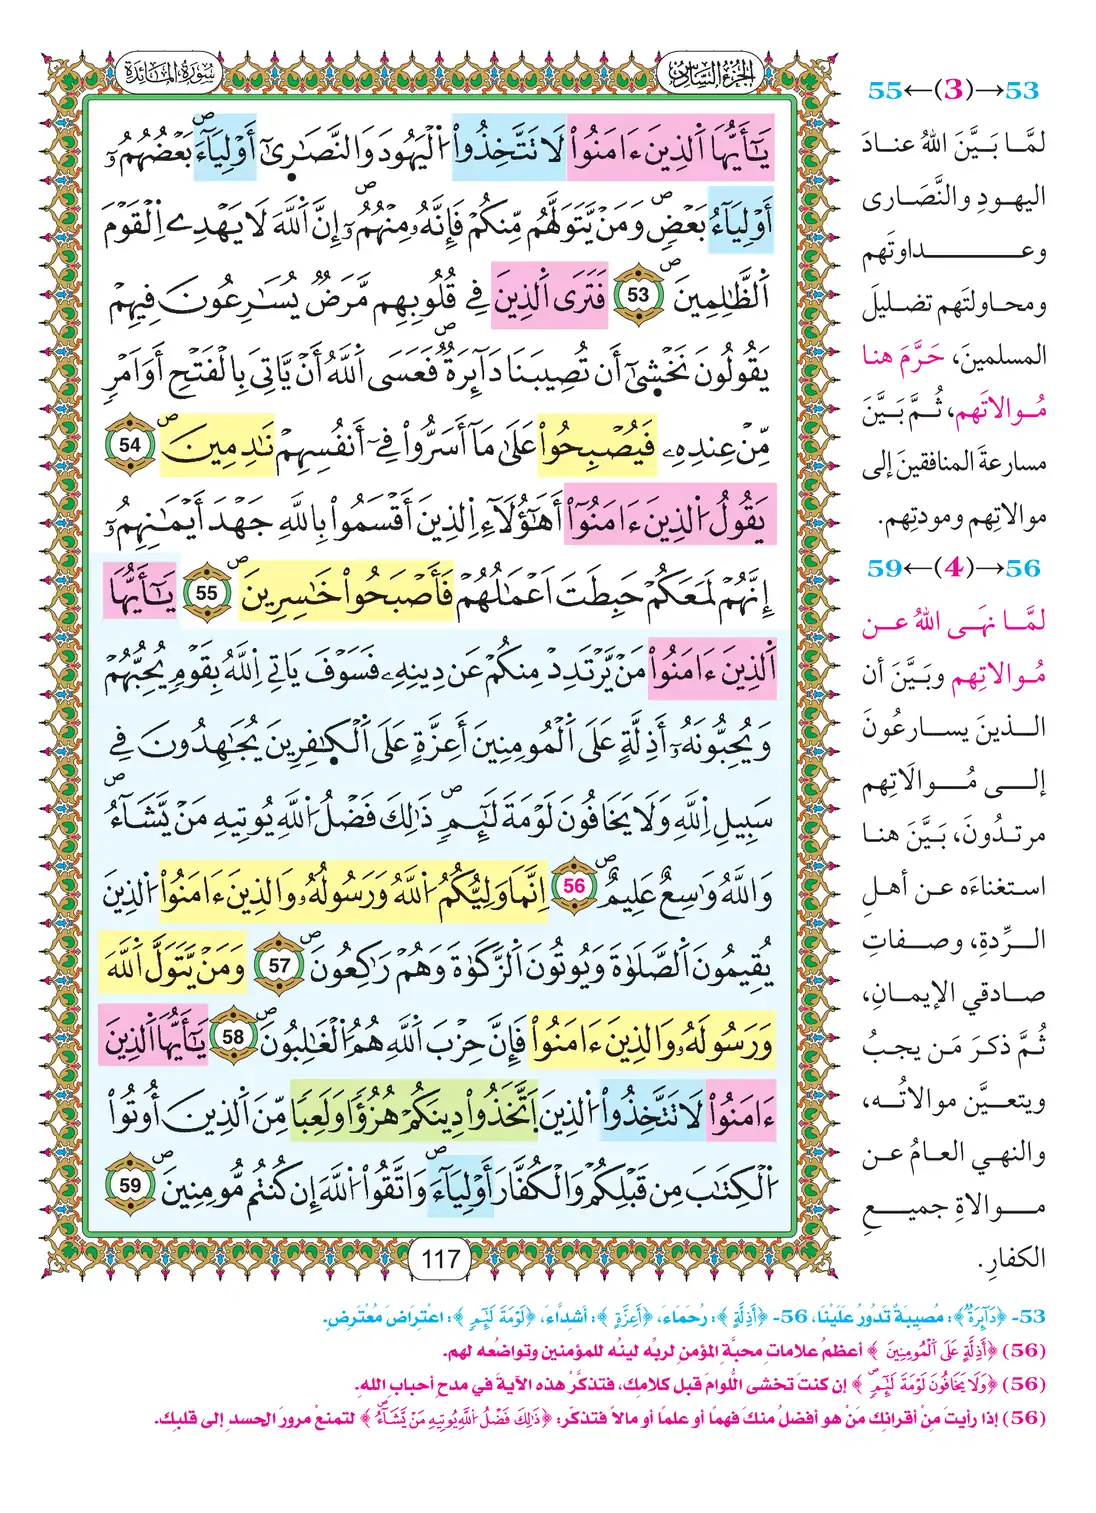 الجزء السادس
سورة المائدة
يَٰٓأَيُّهَا اَ۬لذِينَ ءَامَنُواْ لَا تَتَّخِذُواْ اُ۬لْيَهُودَ وَالنَّصَٰر۪ىٰٓ أَوْلِيَآءَۖ بَعْضُهُمُۥٓ
أَوْلِيَآءُ بَعْضٖۖ وَمَنْ يَّتَوَلَّهُم مِّنكُمْ فَإِنَّهُۥ مِنْهُمُۥٓۖ إِنَّ اَ۬للَّهَ لَا يَهْدِے اِ۬لْقَوْمَ
اَ۬لظَّٰلِمِينَۖ 53 فَتَرَى اَ۬لذِينَ فِے قُلُوبِهِم مَّرَضٞ يُسَٰرِعُونَ فِيهِمْ
يَقُولُونَ نَخْش۪ىٰٓ أَن تُصِيبَنَا دَآئِرَةٞۖ فَعَسَى اَ۬للَّهُ أَنْ يَّاتِيَ بِالْفَتْحِ أَوَ اَمْرٖ
مِّنْ عِندِهِۦ فَيُصْبِحُواْ عَلَىٰ مَآ أَسَرُّواْ فِےٓ أَنفُسِهِمْ نَٰدِمِينَۖ 54
يَقُولُ اُ۬لذِينَ ءَامَنُوٓاْ أَهَٰٓؤُلَآءِ اِ۬لذِينَ أَقْسَمُواْ بِاللَّهِ جَهْدَ أَيْمَٰنِهِمُۥٓ
إِنَّهُمْ لَمَعَكُمْ حَبِطَتَ اَعْمَٰلُهُمْ فَأَصْبَحُواْ خَٰسِرِينَۖ 55 يَٰٓأَيُّهَا
اَ۬لذِينَ ءَامَنُواْ مَنْ يَّرْتَدِدْ مِنكُمْ عَن دِينِهِۦ فَسَوْفَ يَاتِے اِ۬للَّهُ بِقَوْمٖ يُحِبُّهُمْ
وَيُحِبُّونَهُۥٓ أَذِلَّةٍ عَلَى اَ۬لْمُومِنِينَ أَعِزَّةٍ عَلَى اَ۬لْكٰ۪فِرِينَ يُجَٰهِدُونَ فِے
سَبِيلِ اِ۬للَّهِ وَلَا يَخَافُونَ لَوْمَةَ لَآئِمٖۖ ذَٰلِكَ فَضْلُ اُ۬للَّهِ يُوتِيهِ مَنْ يَّشَآءُۖ
وَاللَّهُ وَٰسِعٌ عَلِيمٌۖ 56 اِنَّمَا وَلِيُّكُمُ اُ۬للَّهُ وَرَسُولُهُۥ وَالذِينَ ءَامَنُواْ اُ۬لذِينَ
يُقِيمُونَ اَ۬لصَّلَوٰةَ وَيُوتُونَ اَ۬لزَّكَوٰةَ وَهُمْ رَٰكِعُونَۖ 57 وَمَنْ يَّتَوَلَّ اَ۬للَّهَ
وَرَسُولَهُۥ وَالذِينَ ءَامَنُواْ فَإِنَّ حِزْبَ اَ۬للَّهِ هُمُ اُ۬لْغَٰلِبُونَۖ 58 يَٰٓأَيُّهَا اَ۬لذِينَ
ءَامَنُواْ لَا تَتَّخِذُواْ اُ۬لذِينَ اَ۪تَّخَذُواْ دِينَكُمْ هُزُؤاٗ وَلَعِباٗ مِّنَ اَ۬لذِينَ أُوتُواْ
اُ۬لْكِتَٰبَ مِن قَبْلِكُمْ وَالْكُفَّارَ أَوْلِيَآءَۖ وَاتَّقُواْ اُ۬للَّهَ إِن كُنتُم مُّومِنِينَۖ 59
117
53→(3)←55
لمَّا بَيَّنَ اللهُ عنادَ
اليهودِ والنَّصَارى
وعداوتَهم
ومحاولتَهم تضليلَ
المسلمينَ، حَرَّمَ هنا
مُوالاتَهم، ثُمَّ بَيَّنَ
مسارعةَ المنافقينَ إلى
موالاتِهم ومودتِهم.
56→(4)←59
لمَّا نهَى اللهُ عن
مُوالاتِهم وبَيَّنَ أن
الذينَ يسارعُونَ
إلى مُوالَاتِهم
مرتدُونَ، بَيَّنَ هنا
استغناءَه عن أهلِ
الرِّدةِ، وصفاتِ
صادقي الإيمانِ،
ثُمَّ ذكرَ مَن يجبُ
ويتعيَّن موالاتُه،
والنهي العامُ عن
موالاةِ جميعِ
الكفارِ.
53- ﴿دَآئِرَةٞ﴾: مُصِيبَةٌ تَدُورُ عَلَيْنَا، 56- ﴿أَذِلَّةٍ﴾: رُحَمَاءَ، ﴿أَعِزَّةٍ﴾: أشدَّاءَ، ﴿لَوْمَةَ لَآئِمٖ﴾: اعْتِرَاضَ مُعْتَرِضٍ.
(56) ﴿أَذِلَّةٍ عَلَى اَ۬لْمُومِنِينَ﴾ أعظمُ علاماتِ محبَّةِ المؤمنِ لربِّه لينُه للمؤمنين وتواضُعه لهم.
(56) ﴿وَلَا يَخَافُونَ لَوْمَةَ لَآئِمٖۖ﴾ إن كنتَ تخشى اللُّوامَ قبل كلامِك، فتذكَّرْ هذه الآيةَ في مدحِ أحبابِ الله.
(56) إذا رأيتَ مِنْ أقرانِك مَنْ هو أفضلُ منكَ فهمًا أو علمًا أو مالاً فتذكَّر: ﴿ذَٰلِكَ فَضْلُ اُ۬للَّهِ يُوتِيهِ مَنْ يَّشَآءُۖ﴾ لتمنعْ مرورَ الحسدِ إلى قلبِك.